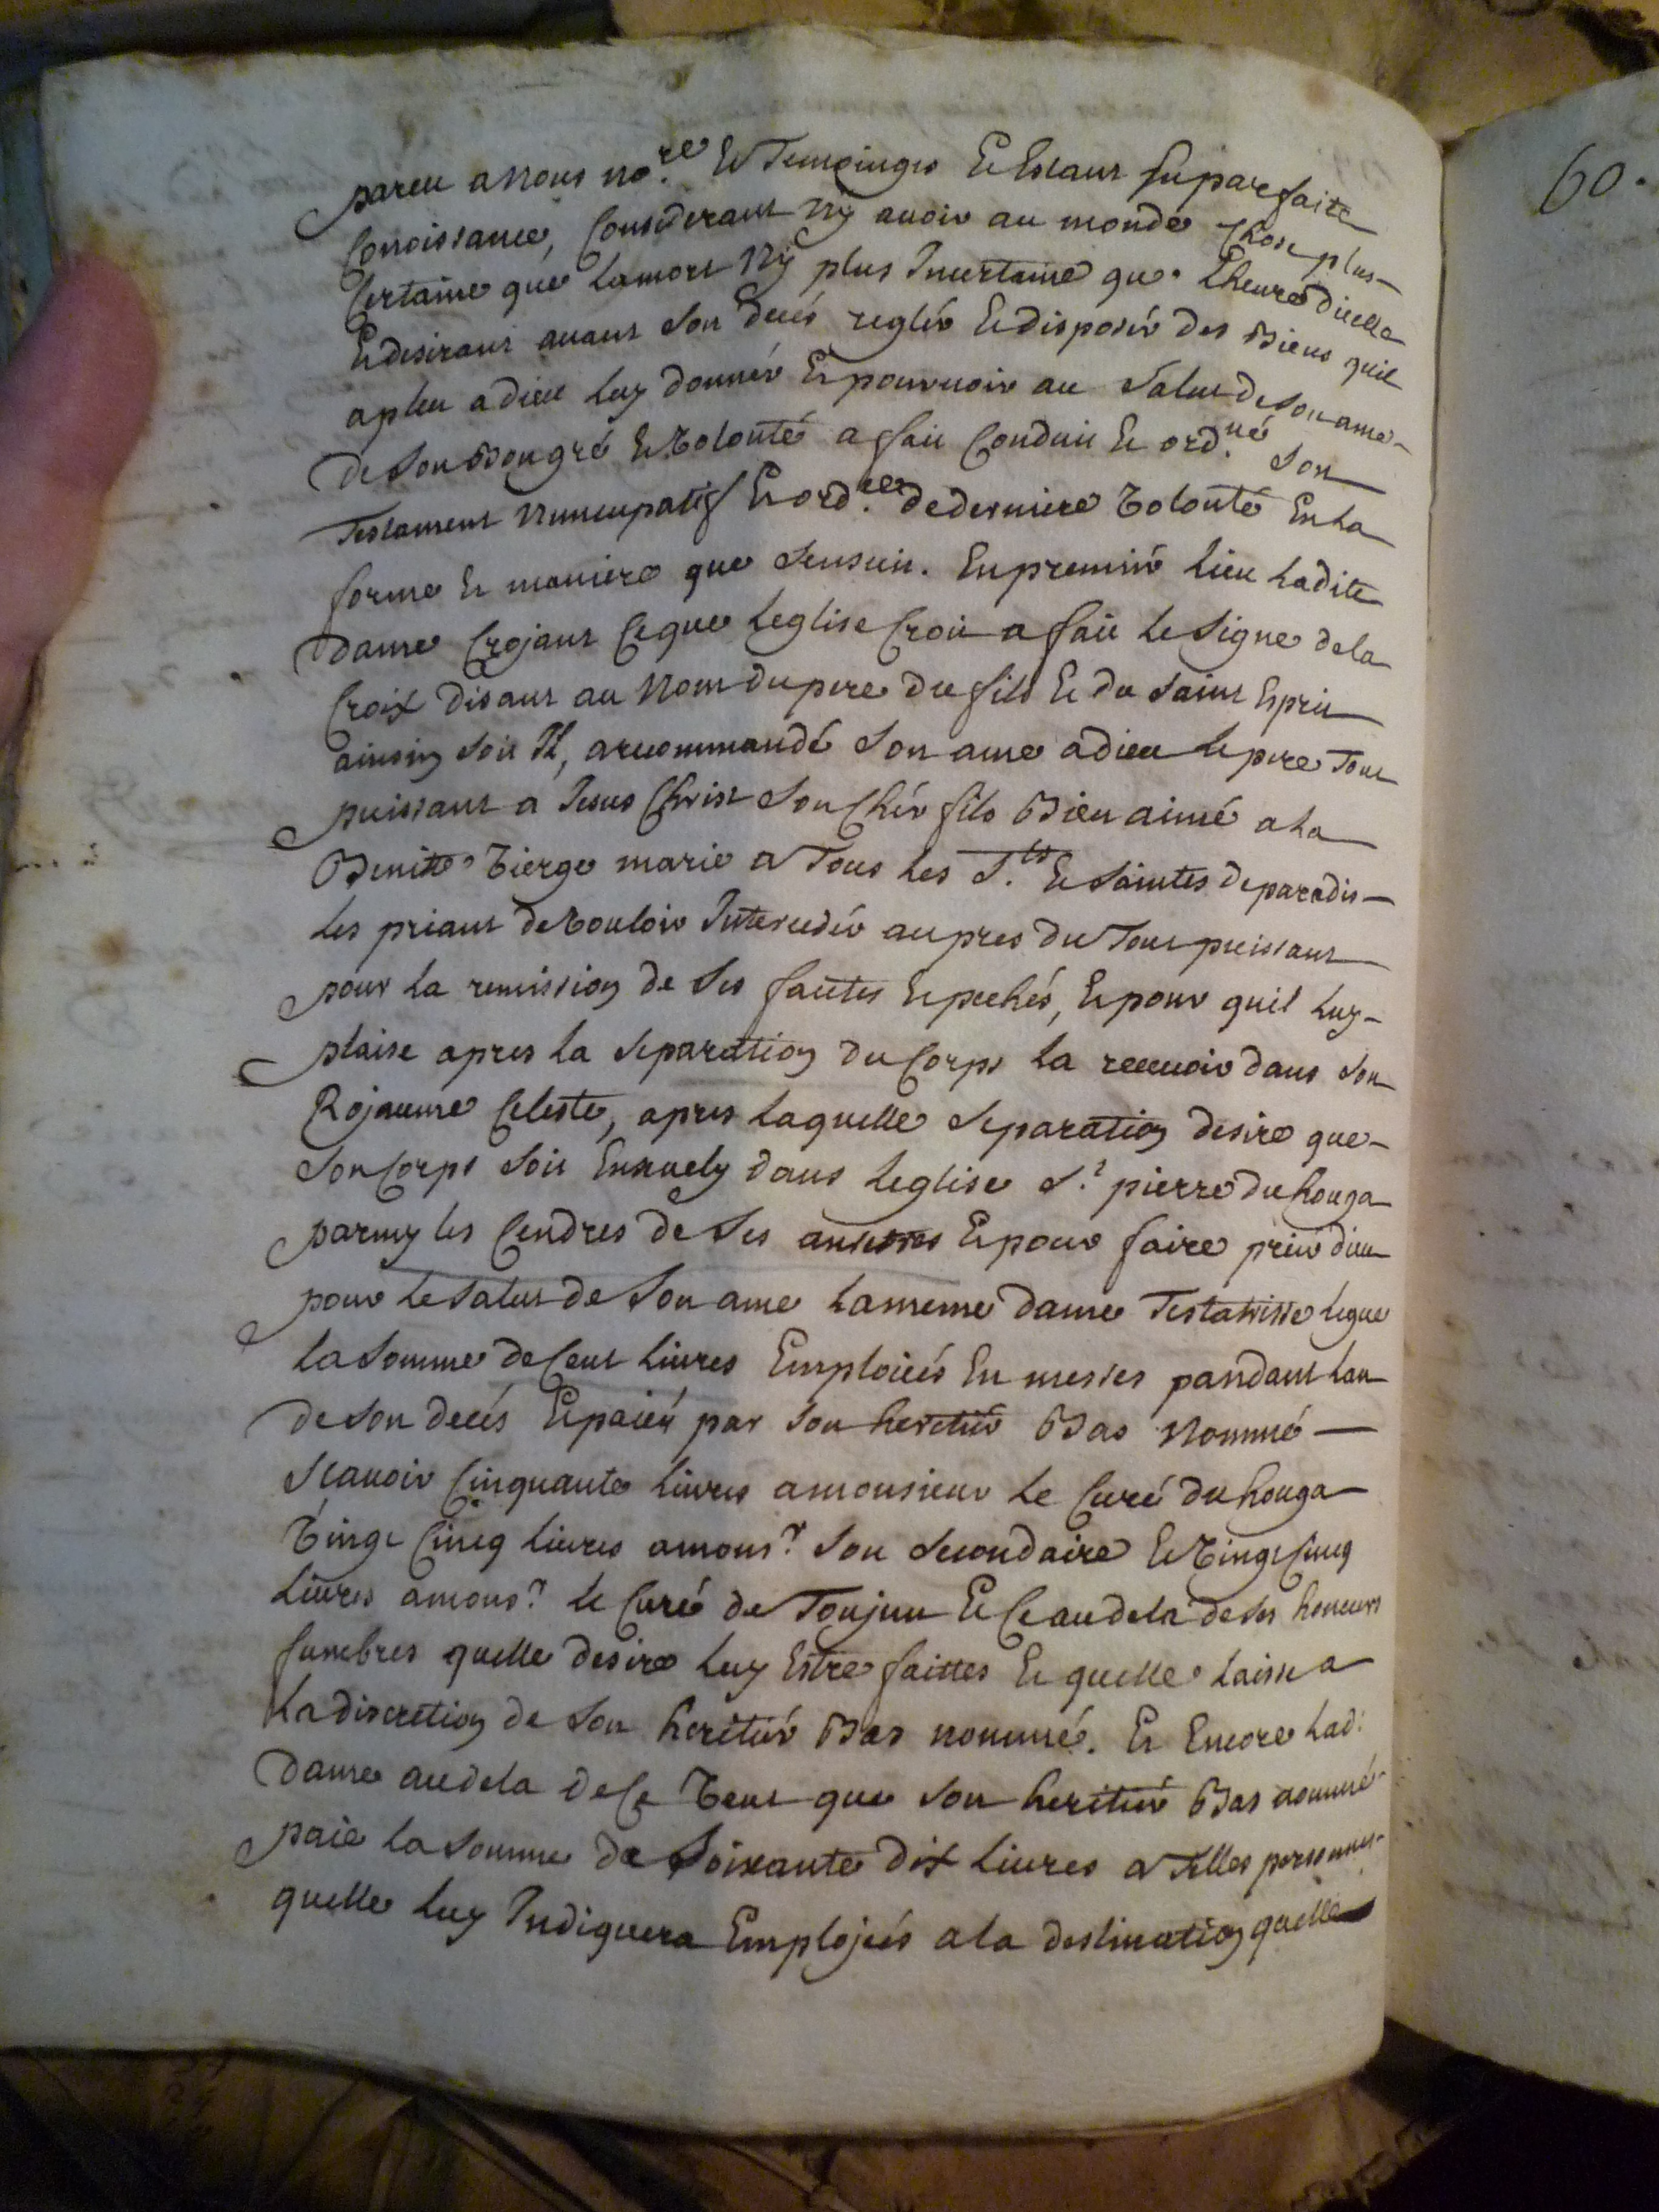 pareu a nous no.re Et Temoingts Et Estant En parfaite
Connoissance, Considerant Ny avoir au monde chose plus
Certaine que La mort Ny plus Incertaine que Lheure dicelle
Et desirant avant Son decés reglér Et disposér des Biens quil
a pleu a dieu Luy donnér Et pourvoir au Salut de Son ame
de Son Bon gré Et Volonté a fait Conduit Et ord.né Son
Testament Nuncupatif Et ord.ce de derniere Volonté En La
forme Et maniere que Sensuit. En premiér Lieu Ladite
Dame Crojant Ce que Leglise Croit a fait Le Signe de la
Croix disant au Nom du pere du fils Et du Saint Esprit
ainsin Soit Il, a recommandé Son ame a dieu Le pere Tout
puissant a Jesus Christ Son Chér fils Bien aimé a La
Benitte Vierge marie a Tous Les S.ts Et Saintes de paradis
Les priant de Vouloir Intercedér aupres du Tout puissant
pour La remission de Ses fautes Et pechés, Et pour quil Luy
plaise apres La Separation du Corps La recevoir dans Son
Rojaume Celeste, apres Laquelle Separation desire que
Son Corps Soit Ensevely dans Leglise S.t pierre du houga
parmy Les Cendres de Ses ancetres Et pour faire priér dieu
pour Le Salut de Son ame La meme dame Testatrisse Legue
La Somme de Cent Livres Emploiées En messes pandant Lan
de Son decés Et paieés par Son heretiér Bas Nommé
Scavoir Cinquante Livres a monsieur Le Curé du houga
Vingt Cincq Livres a mons.r Son Secondaire Et Vingt Cincq
Livres a mons.r Le Curé de Toujun Et Ce au dela de Ses honeurs
funebres quelle desire Luy Estre faittes Et quelle Laisse a
La discretion de Son heritiér Bas nommé. Et Encore Lad:
Dame au dela de Ce Veut que Son heritiér Bas nommé
paie La Somme de Soixante dix Livres a Telles personnes
quelle Luy Indiquera Emplojées a la destination quelle
60.